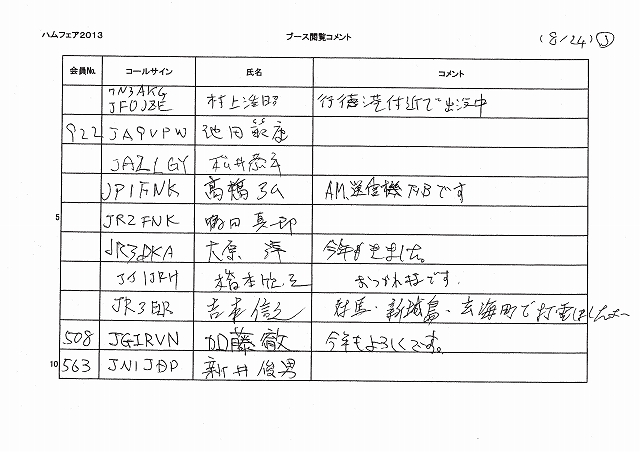 ハムフェア2013 ブース閲覧コメント (8/24) ①
会員No. コールサイン 氏名 コメント
7N3AKG
JF0JBE 村上 行徳港付近で出没中
922 JA9VPW 池田
JA2LGY 松井
JP1FNK 高橋 AM送信機 です
5 JR2FNK 真一郎
JR3DKA 大原 洋 今年も来ました。
JJ1JRH 橋本 おつかれさまです。
JR3EIR 吉本 信之 対馬・新城島・玄海町で
508 JG1RVN 加藤 徹 今年もよろしくです。
10 563 JN1JDP 新井 俊男